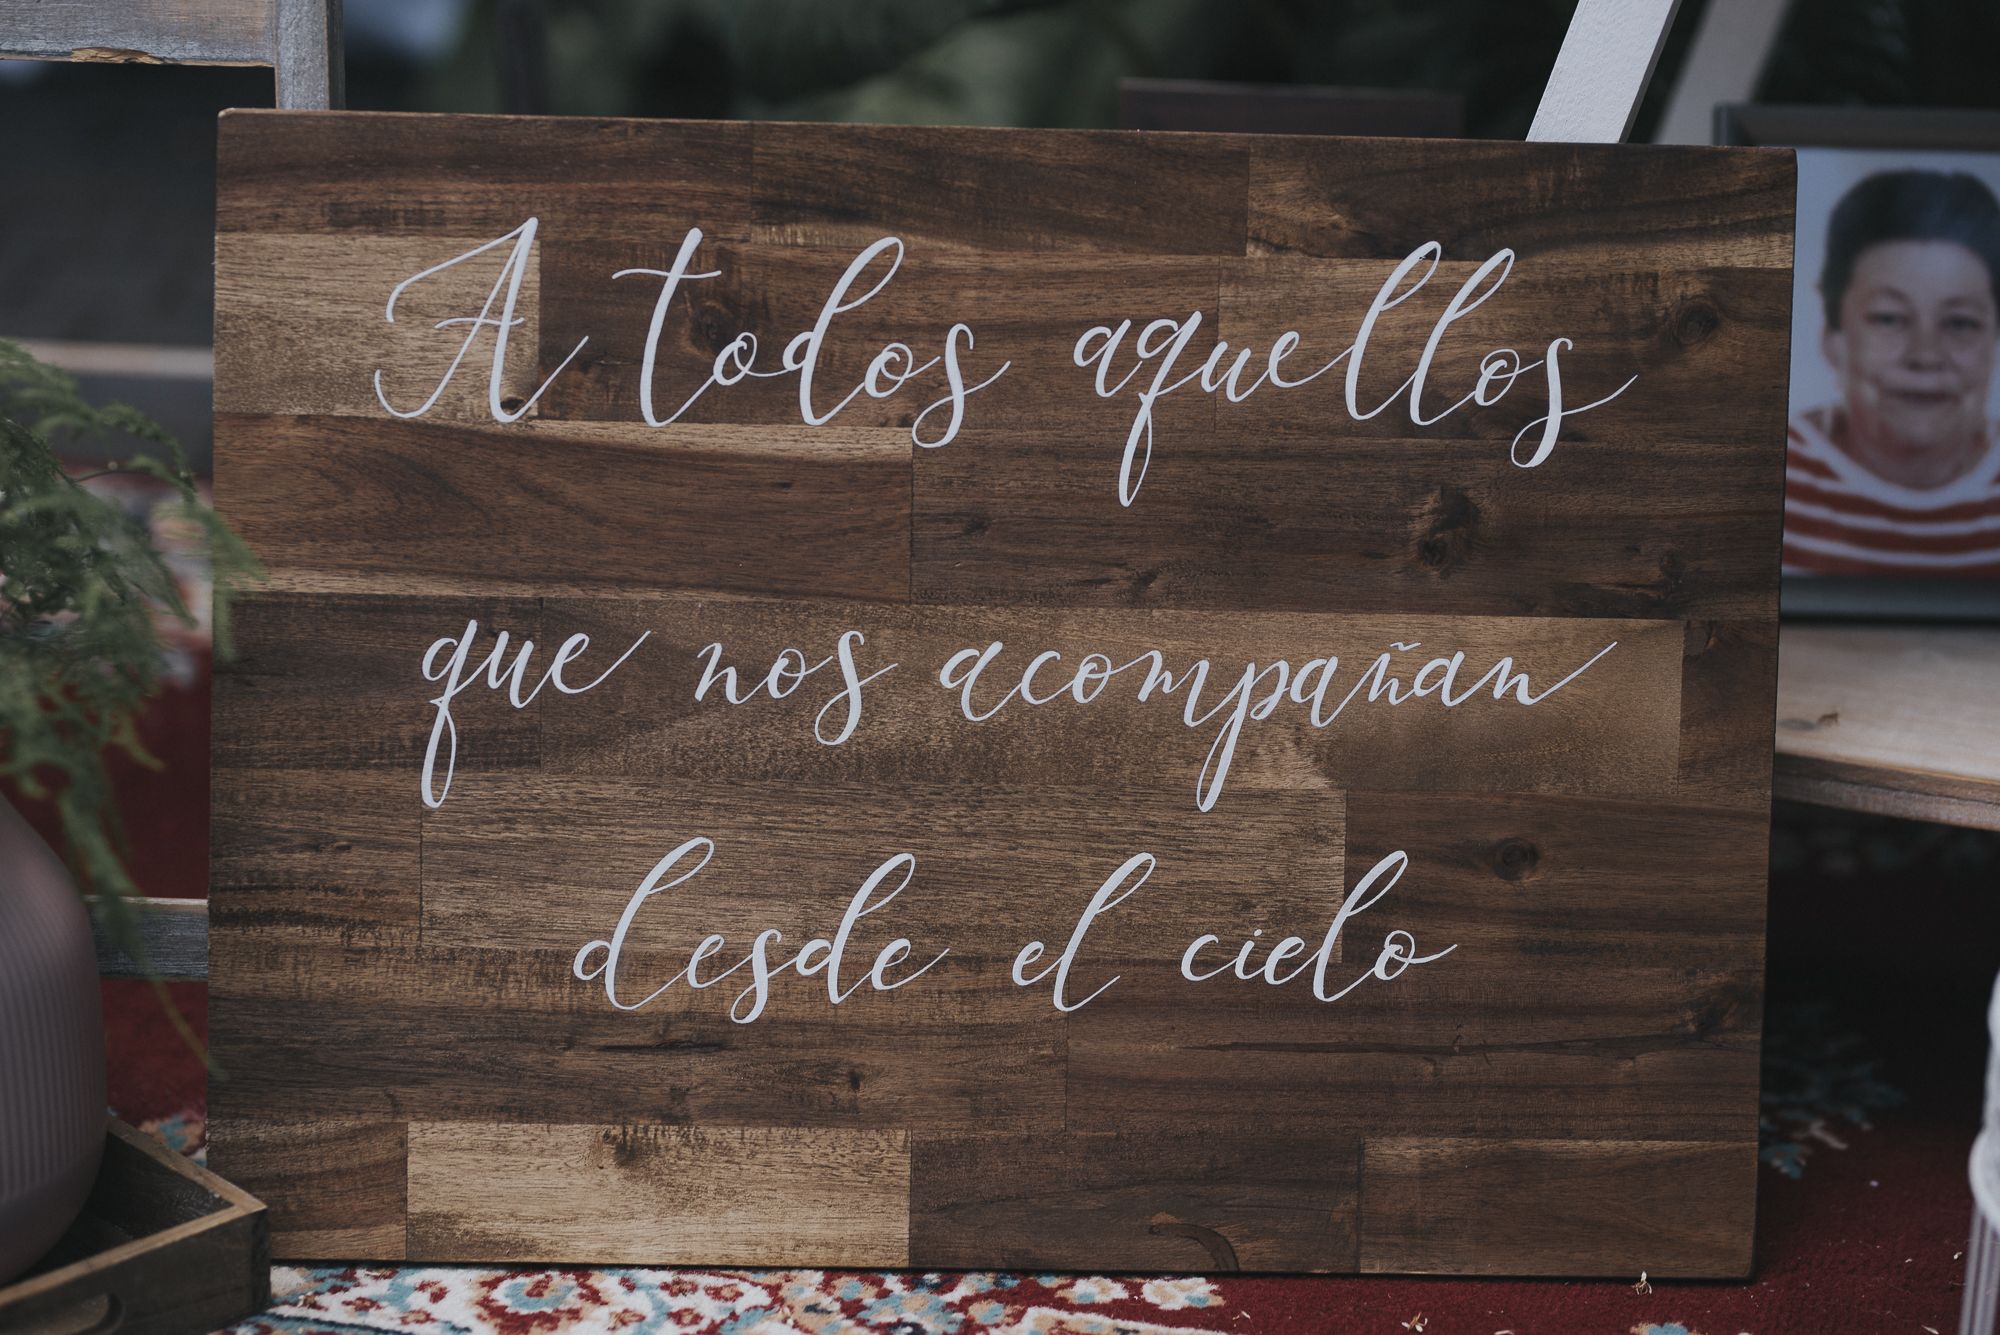 A todos aquellos
que nos acompañan
desde el cielo